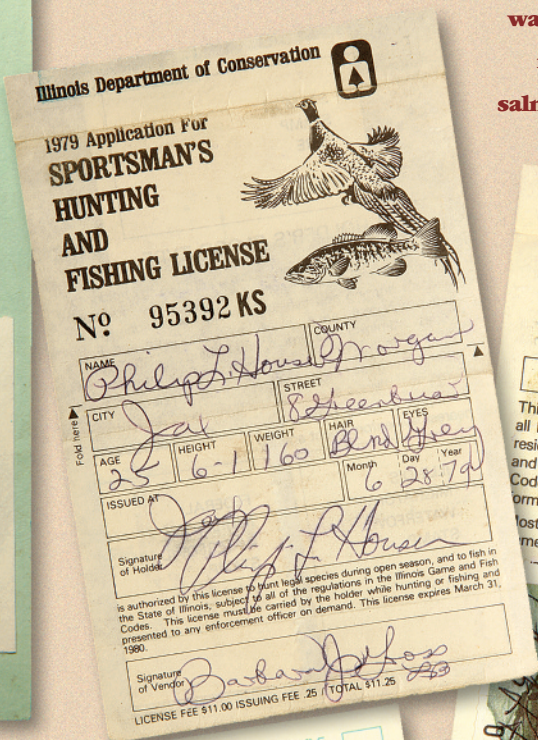 wa
saln
Illinois Department of Conservation
1979 Application For
SPORTSMAN'S
HUNTING
AND
FISHING LICENSE
Nº 95392 KS
NAME COUNTY
Philip L. Houser Morgan
CITY STREET
Jax 8 Greenbriar
Fold here
AGE HEIGHT WEIGHT HAIR EYES
25 6-1 160 Blnd Grey
ISSUED AT Month Day Year
Jax 6 28 79
Signature
of Holder Philip L Houser
is authorized by this license to hunt legal species during open season, and to fish in
the State of Illinois, subject to all of the regulations in the Illinois Game and Fish
Codes. This license must be carried by the holder while hunting or fishing and
presented to any enforcement officer on demand. This license expires March 31,
1980.
Signature
of Vendor Barbara J Gross
LICENSE FEE $11.00 ISSUING FEE .25 TOTAL $11.25
Thi
all
resi
and
Cod
orm
lost
me